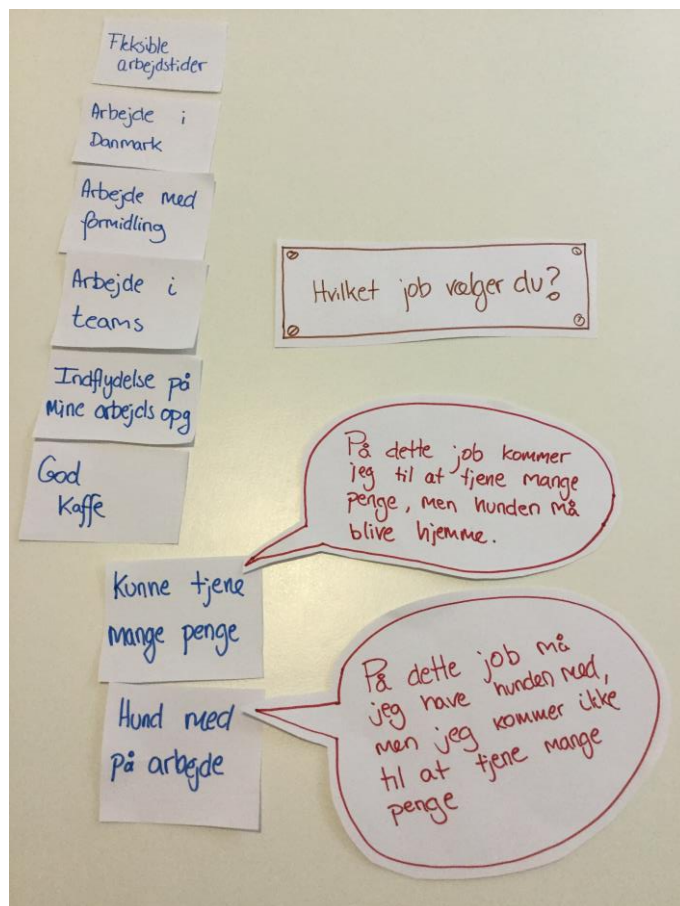 Fleksible
arbejdstider
Arbejde i
Danmark
Arbejde med
formidling
Arbejde i
teams
Indflydelse på
Mine arbejds opg
God
Kaffe
Hvilket job vælger du?
På dette job kommer
jeg til at tjene mange
penge, men hunden må
blive hjemme.
Kunne tjene
mange penge
På dette job må
jeg have hunden med,
men jeg kommer ikke
til at tjene mange
penge
Hund med
på arbejde